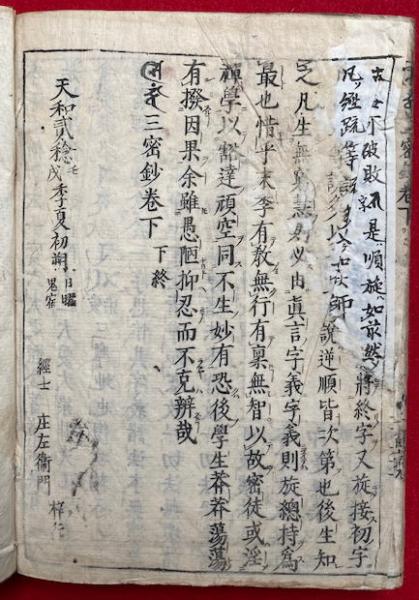 不破敗亂是順旋如前然將終字又旋接初字
凡經疏等 說逆順皆次第也後生知
之凡生無 由眞言字義字義則旋總持為
最也惜乎末季有教無行有稟無智以故密徒或淫
禪學以豁達頑空同不生妙有恐後學生莽莽蕩蕩
有撥因果余雖愚陋抑忍而不克辨哉
三密鈔卷下 下終
天和貳稔戌季夏初 日曜鬼宿
經士 庄左衞門 梓行